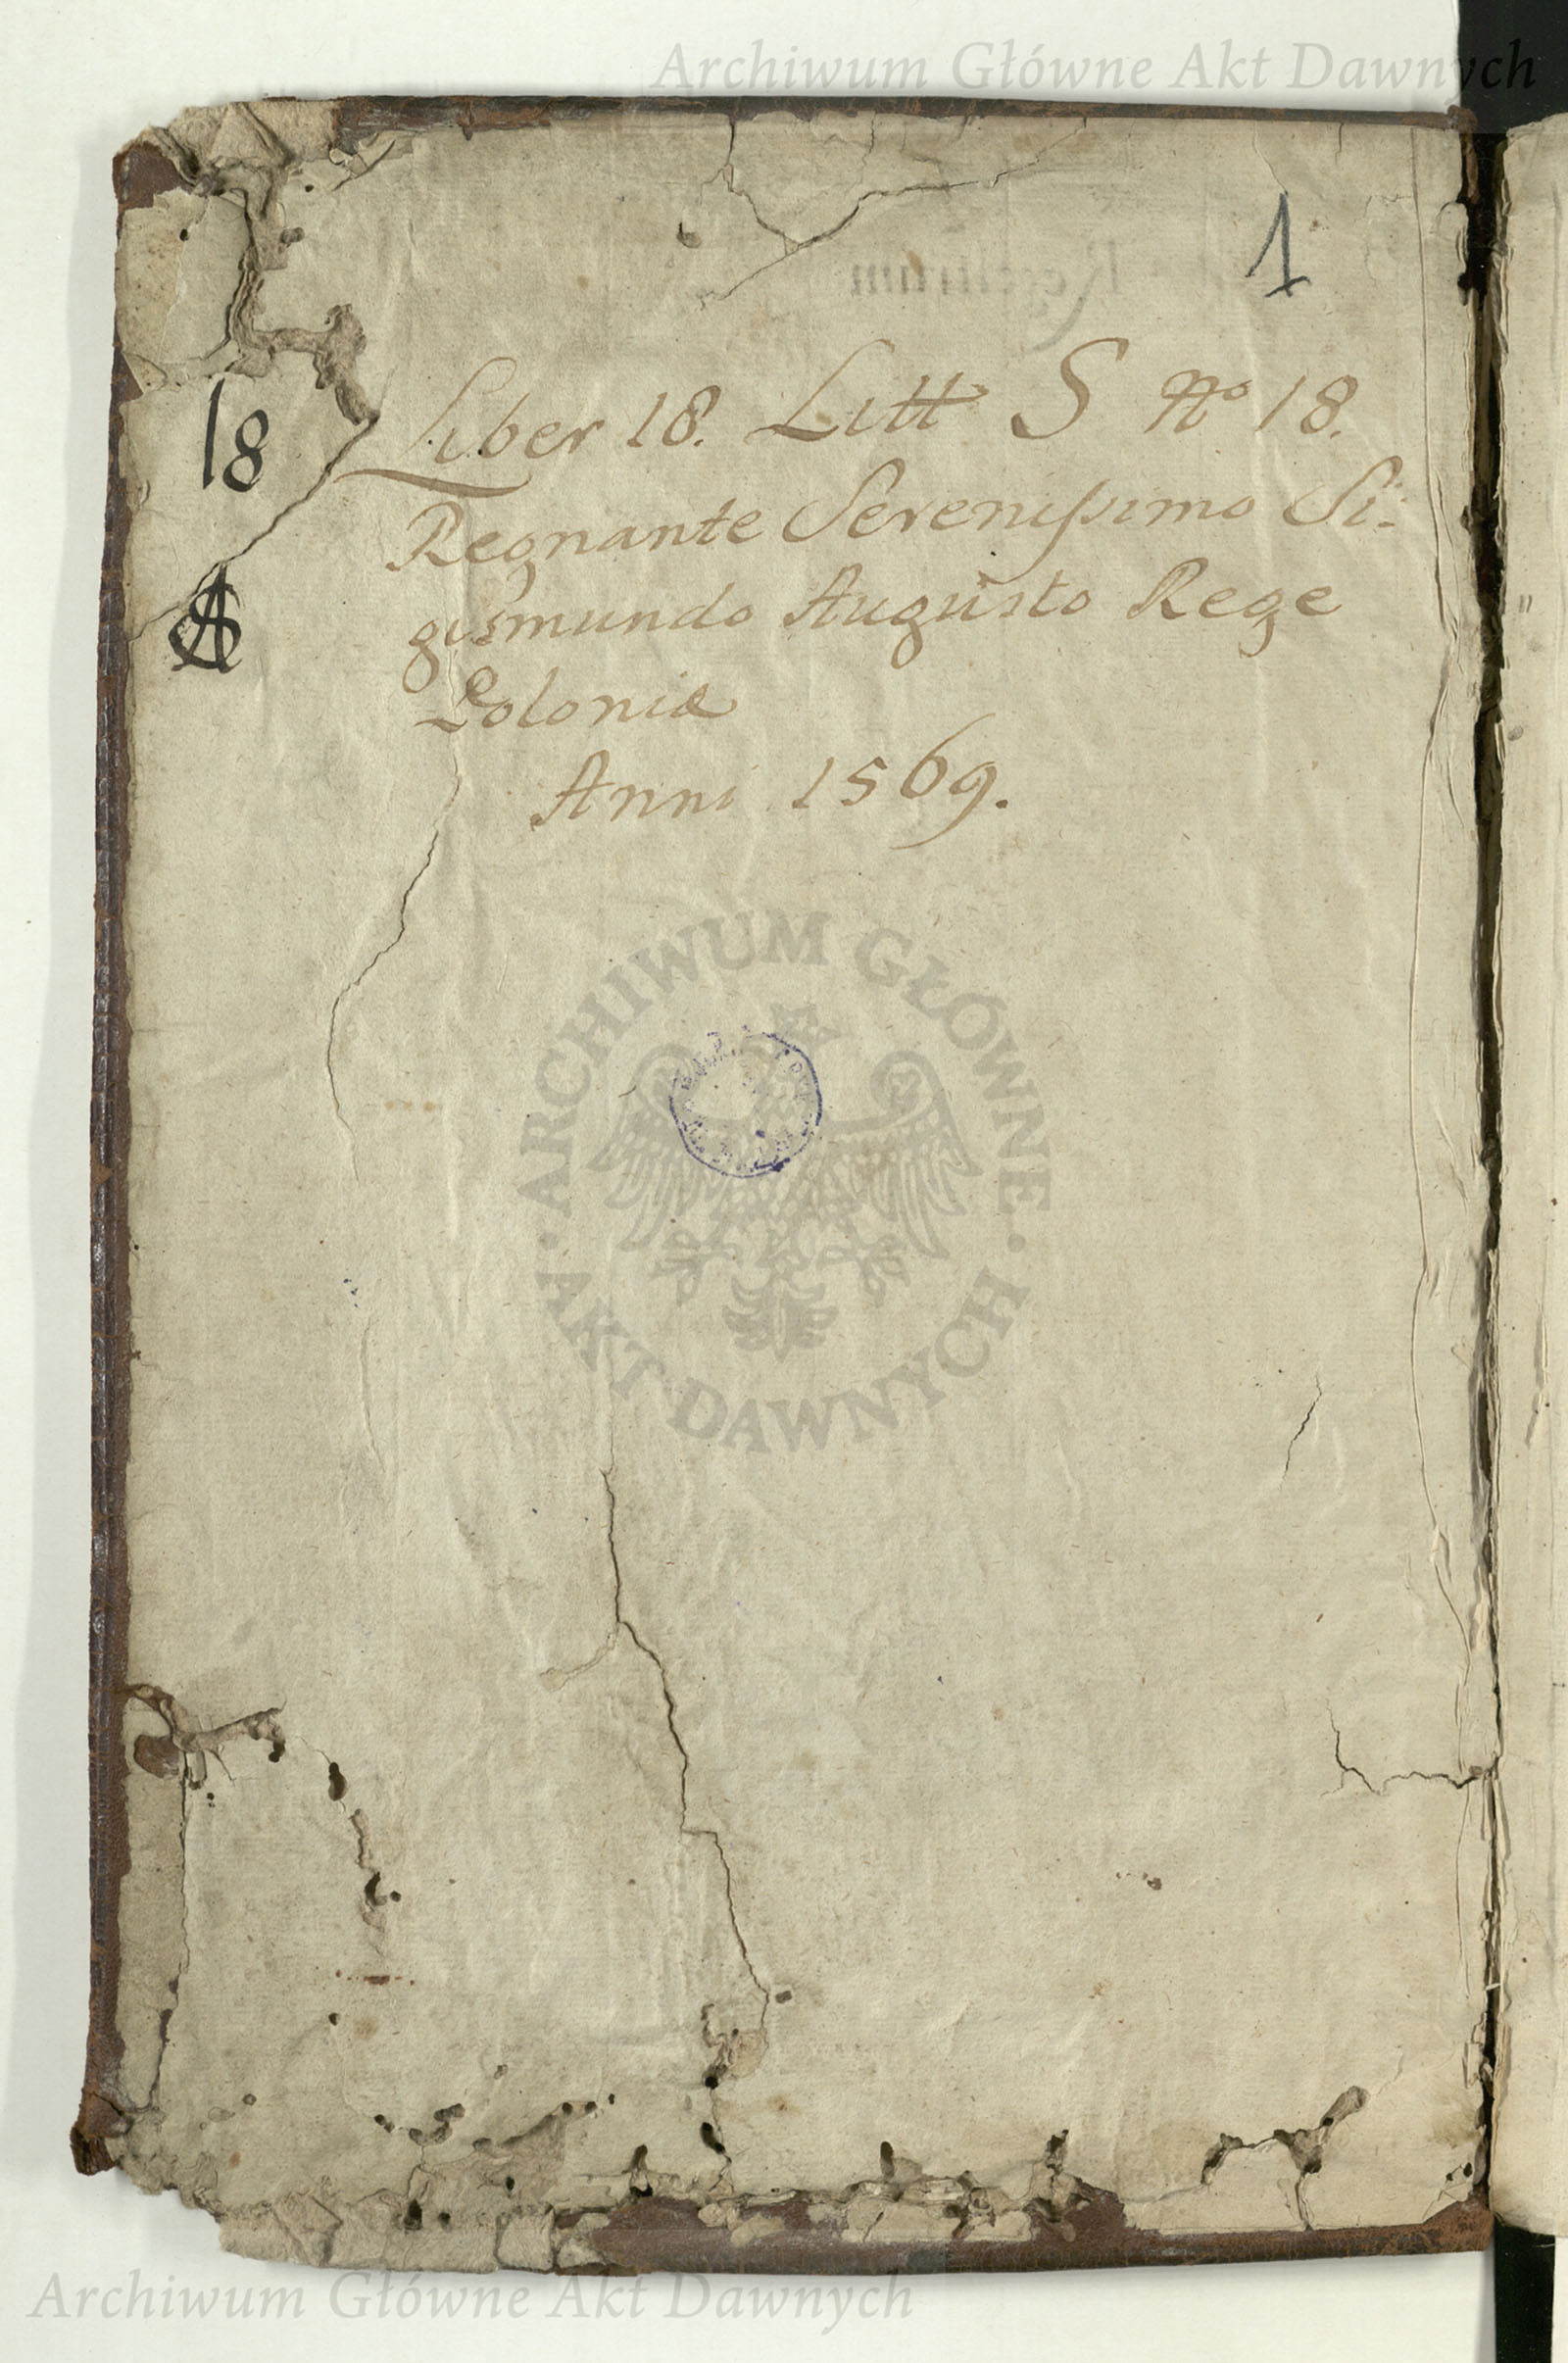 Archiwum Główne Akt Dawnych
1
Liber 18. Litt S No 18.
18
Regnante Serenissimo Si:
gismundo Augusto Rege
Poloniæ
Anni 1569.
ARCHIWUM GŁÓWNE
AKT DAWNYCH
Archiwum Główne Akt Dawnych